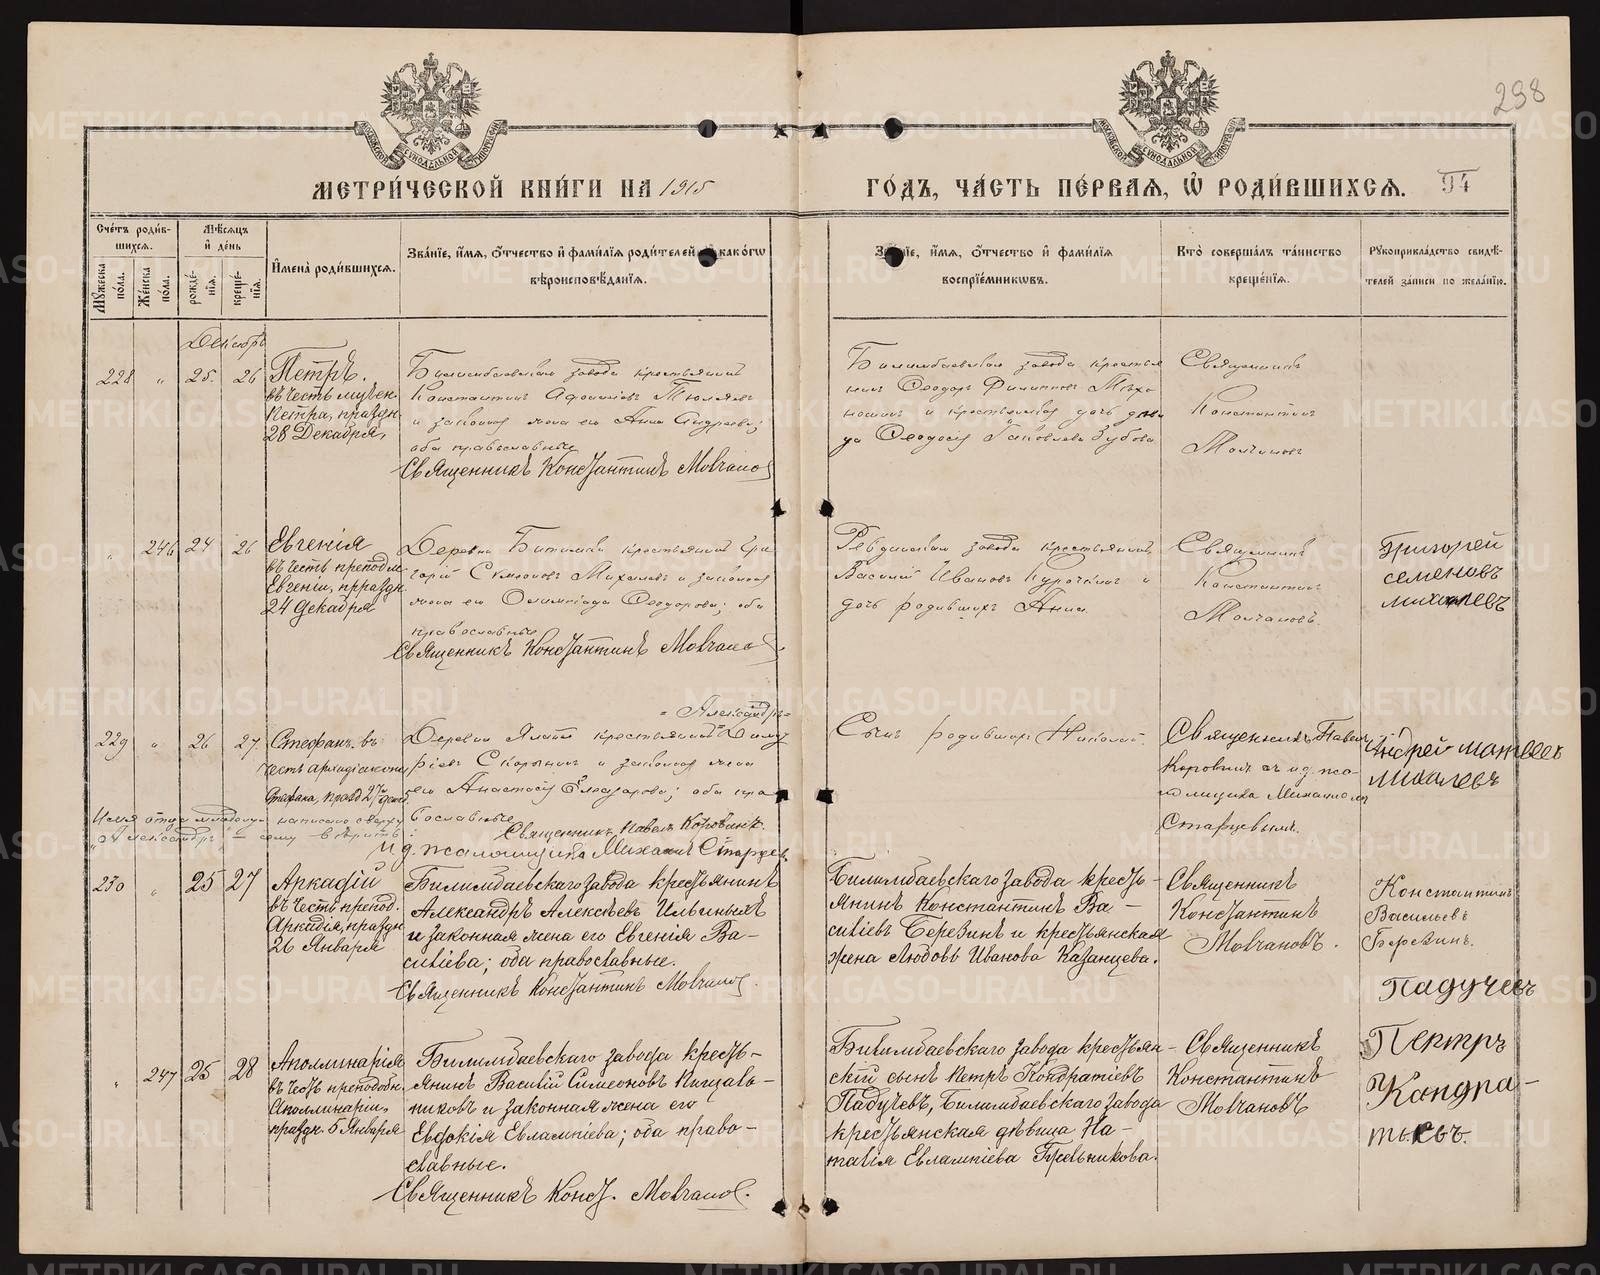 298
МЕТРИ́ЧЕСКОЙ КНИ́ГИ НА 1915
ГО́ДЪ, ЧА́СТЬ ПЕ́РВАЯ, Ѡ҆ РОДИ́ВШИХСЯ.
Сче́тъ роди́в-
шихся.
Мꙋ́жеска по́ла.
Же́нска по́ла.
Мѣ́сяцъ
и҆ де́нь
рожде́-
нїя.
креще́-
нїя.
И҆мена̀ роди́вшихся.
Зва́нїе, и҆́мя, ѻ҆́тчество и҆ фами́лїя роди́телей и҆ како́гѡ
вѣроисповѣ́данїя.
Зва́нїе, и҆́мя, ѻ҆́тчество и҆ фами́лїя
воспрїе́мникѡвъ.
Кто̀ соверша́лъ та́инство
креще́нїя.
Рꙋкоприкла́дство свидѣ́-
телей за́писи по жела́нїю.
Декабрь
228 " 25. 26
Петръ.
въ честь мучен.
Петра, праздн.
28 Декабря,
Билимбаевскаго завода крестьянинъ
Константинъ
и законная жена его Анна Андреева;
оба православные
Священникъ Константинъ Молчановъ
Билимбаевскаго завода крестья
нинъ Ѳеодоръ Филипповъ
и крестьянская дочь деви-
ца Ѳеодосія Іаковлева Зубова
Священникъ
Константинъ
Молчановъ
" 246 24 26
Евгенія
въ честь преподм.
Евгеніи, праздн.
24 декабря
Деревни Битимки крестьянинъ Гри
горій Симеоновъ Михалевъ и законная
жена его Олимпіада Ѳеодорова; оба
православные
Священникъ Константинъ Молчановъ
Ревдинскаго завода крестьянинъ
Василій Ивановъ Курочкинъ и
дочь родившихъ Анна.
Священникъ
Константинъ
Молчановъ.
Григорей
семеновъ
михалевъ
229 " 26 27.
Стефанъ. въ
честь архидіакона
Стефана, празд 27го декаб.
= Александръ =
Деревни крестьянинъ Дими
тріевъ Скорынинъ и законная жена
его Анастасія Елеазарова; оба пра
вославные
Священникъ Павелъ Коровинъ.
И д. псаломщика Михаилъ Старцевъ
Имя отца младенца написано сверху
"Александръ" — сему вѣрить
Сынъ родившихъ Николай.
Священникъ Павелъ
Коровинъ съ и д. пса-
ломщика Михаиломъ
Старцевымъ.
Андрей матвеевъ
михалевъ
230 " 25 27
Аркадій
въ честь препод.
Аркадія, праздн
26 Января
Билимбаевскаго завода крестьянинъ
Александръ Алексѣевъ Ильиныхъ
и законная жена его Евгенія Ва-
силіева; оба православные.
Священникъ Константинъ Молчановъ.
Билимбаевскаго завода кресть-
янинъ Константинъ Ва-
силіевъ Березинъ и крестьянская
жена Любовь Иванова Казанцева.
Священникъ
Константинъ
Молчановъ.
Константинъ
Васильевъ
Березинъ.
" 247 25 28
Аполлинарія
въ честь преподобн.
Аполлинаріи,
праздн. 5 Января
Билимбаевскаго завода кресть-
янинъ Василій Симеоновъ
никовъ и законная жена его
Евдокія Евлампіева; оба право-
славные.
Священникъ Конст. Молчановъ.
Билимбаевскаго завода крестьян-
скій сынъ Петръ Кондратіевъ
Падучевъ, Билимбаевскаго завода
крестьянская дѣвица На-
талія Евлампіева
Священникъ
Константинъ
Молчановъ
Падучевъ
Пектръ
Кандра-
тьевъ.